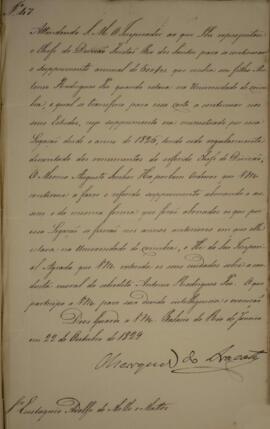 Nº 47
Attendendo S. M. O Imperador ao que Lhe representou
o Chefe de Divisão
o supprimento annual de que recebia seu filho An-
tonio Rodrigues quando estava na Universidade de Coim-
bra, o qual se transfere para essa corte a continuar nos
seus Estudos, cujo supprimento era por essa
Legação desde o anno de 1826, tendo sido regularmente
descontado dos vencimentos do referido Chefe de Divisão,
O Mesmo Augusto Senhor Ha por bem Ordenar que VM.
continue a fazer o referido supprimento
e da mesma forma que forão abonados os que por
essa Legação se fizerão nos annos anteriores em que elle
estava na Universidade de Coimbra, e He de Seu Imperi-
al Agrado que VM. estenda os seus cuidados sobre a con-
ducta moral do subdito Antonio Rodrigues O que
participo a VM. para sua devida intelligencia, e execução
Deos Guarde a VM. Palacio do Rio de Janeiro
em 22 de Outubro de 1829
Marquez de Aracaty
Sr. Eustaquio Adolfo de Mello e Mattos